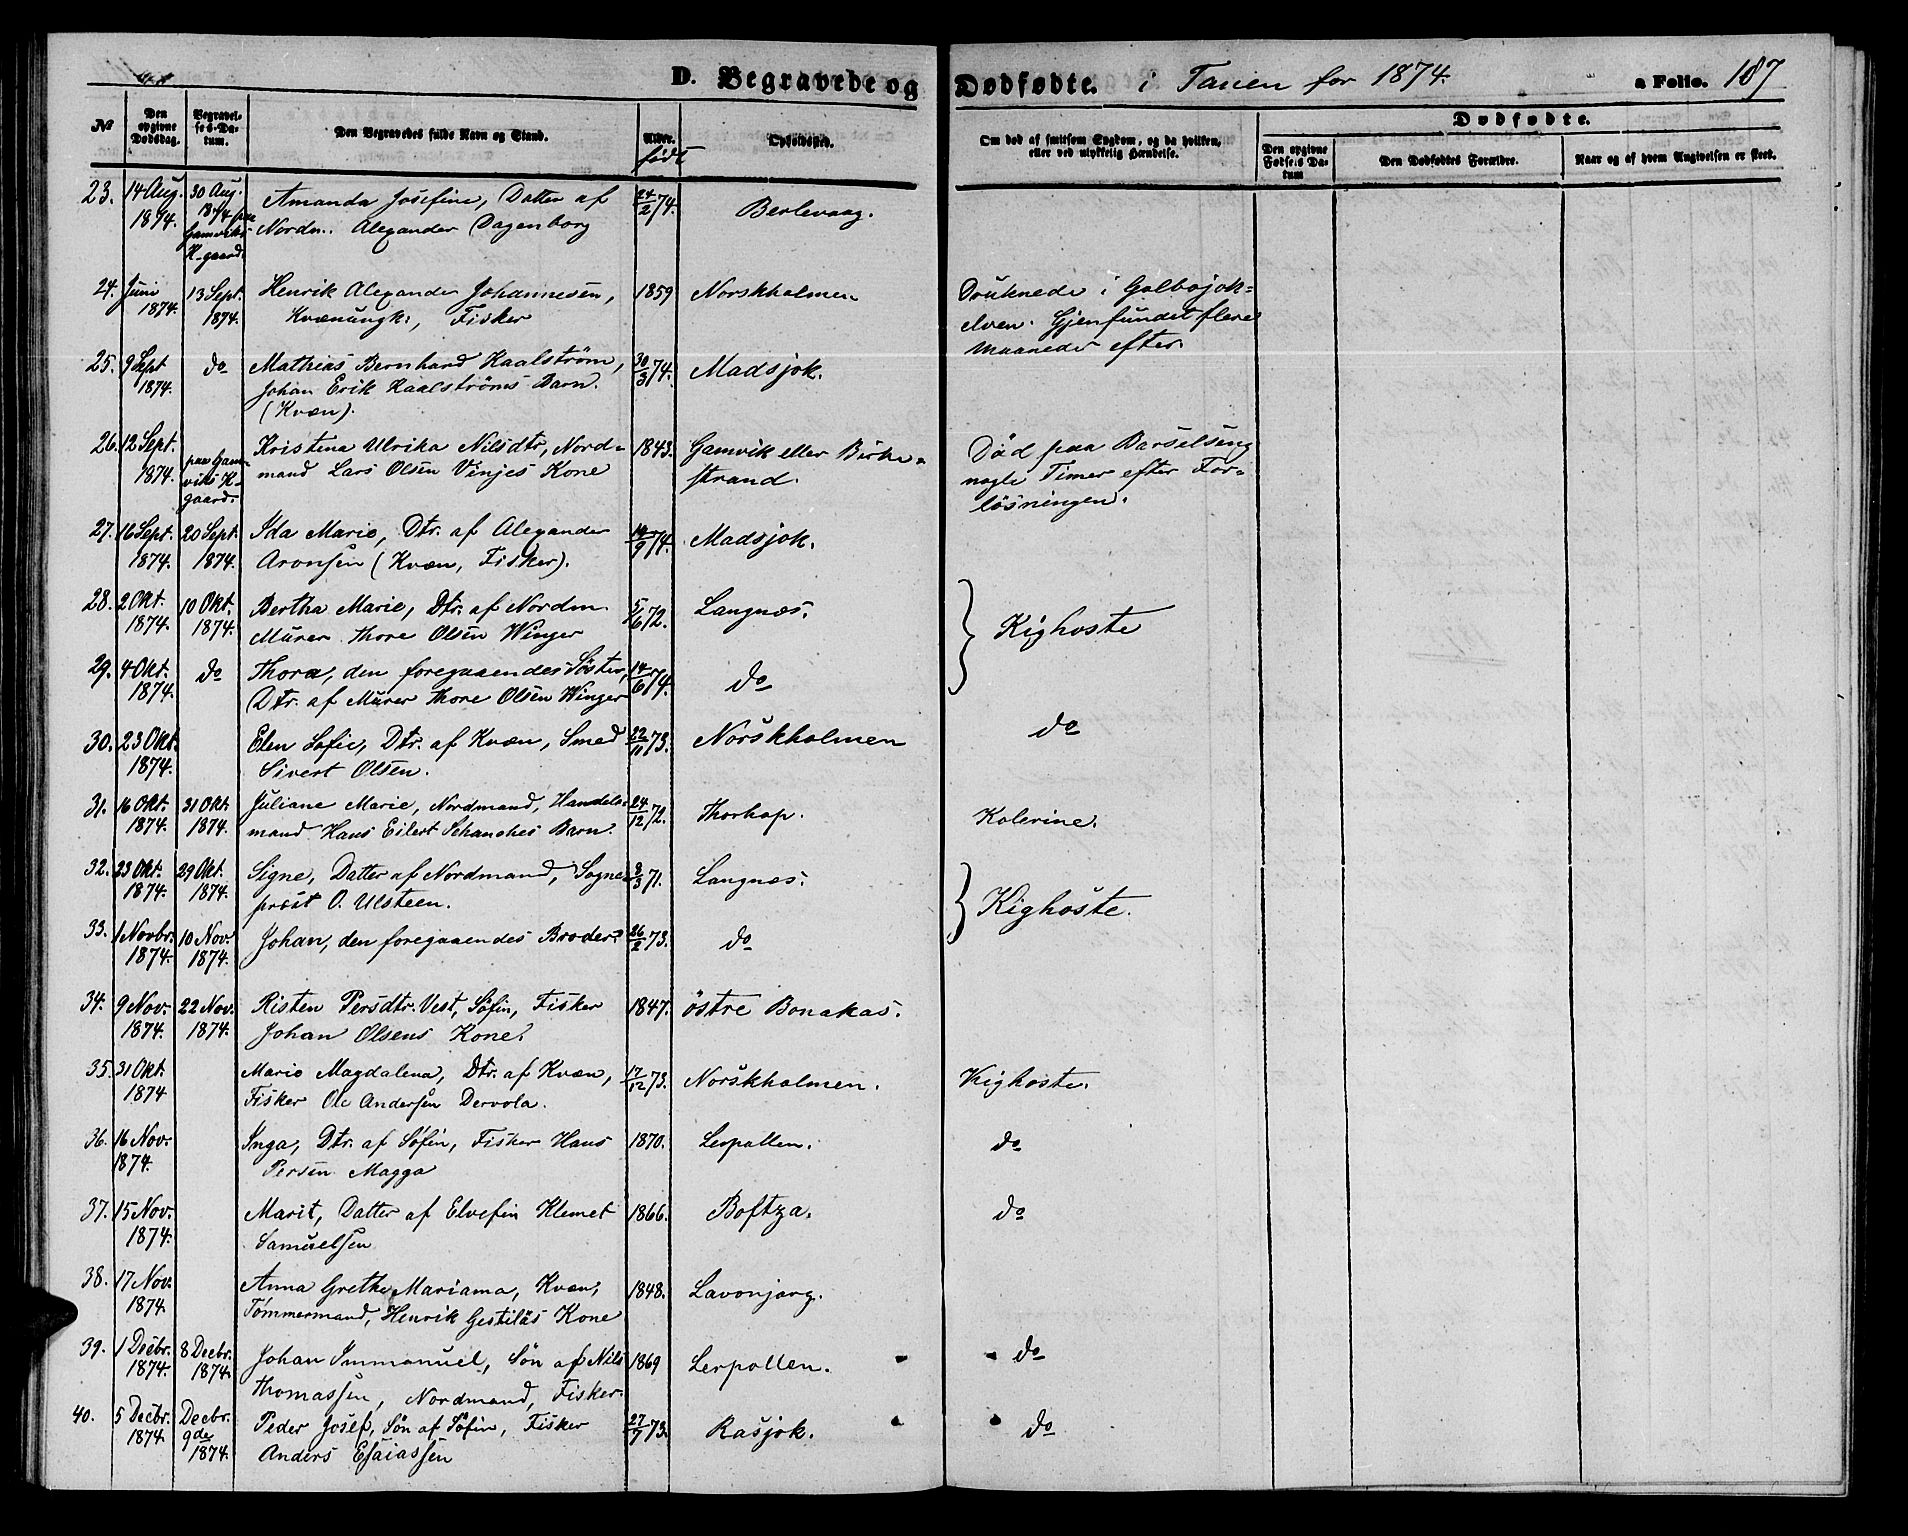 D. Begravede og Dødfødte. i Tanen for 1874. a Folio. 107
No
Den opgivne Dødsdag.
Begravelses-Datum.
Den Begravedes fulde Navn og Stand.
Alder. født
Opholdssted.
Om død af smitsom Sygdom, og da hvilken, eller ved ulykkelig Hændelse.
Dødfødte.
Den opgivne Fødsels Datum
Den Dødfødtes Forældre.
Naar og af hvem Angivelsen er skeet.
23. 14 Aug. 30 Aug. Amanda Josefine, Datter af 24/2 74. Berlevaag.
1874. 1874 paa Nordm. Alexander Dagenborg
Gamviks
K-gaard.
24. Juni 13 Sept. Henrik Alexander Johannesen, 1859 Norskholmen Druknede i Galbajok=
1874. 1874. Kvænungk:, Fisker elven. Gjenfundet flere
Maaneder efter.
25. 9 Sept do Mathias Bernhard Kaalström, 30/3 74. Madsjok.
1874. Johan Erik Kaalströms Barn.
(Kvæn).
26. 12 Sept. Kristina Ulrika Nilsdtr, Nord= 1843. Gamvik eller Birke= Død paa Barselseng
1874. paa Gamviks K-gaard. mand Lars Olsen Vinjes Kone strand. nogle Timer efter For=
løsningen.
27. 16 Sept. 20 Sept. Ida Marie, Dtr. af Alexander 14/9 74. Madsjok.
1874. 1874. Aronsen (Kvæn, Fisker).
28. 2 Okt. 10 Okt. Bertha Marie, Dtr. af Nordm. 5/6 72. Langnæs.
1874. 1874. Murer Thore Olsen Winger } Kighoste
29. 4 Okt. do Thora, den foregaaendes Søster, 14/6 74. do
1874. Dtr. af Murer Thore Olsen Winger
30. 23 Okt. Elen Sofie, Dtr. af Kvæn, Smed 22/11 73. Norskholmen do
1874. Sivert Olsen.
31. 16 Okt. 31 Okt. Juliane Marie, Nordmand, Handels= 24/12 72. Thorhop. Kolerine.
1874. 1874. mand Hans Eilert Schanches Barn.
32. 23 Okt. 29 Okt. Signe, Datter af Nordmand, Sogne= 3/3 71. Langnæs.
1874. 1874. præst O. Ulsteen. } Kighoste.
33. 1 Novbr. 10 Nov. Johan, den foregaaendes Broder. 26/2 73. do
1874. 1874.
34. 9 Nov. 22 Nov. Risten Persdtr. Vest, Søfin, Fisker 1847. østre Bonakas.
1874. 1874. Johan Olsens Kone.
35. 31 Okt. Marie Magdalena, Dtr. af Kvæn, 17/12 73. Norskholmen. Kighoste.
1874 Fisker Ole Andersen Dervola.
36. 16 Nov. Inga, Dtr. af Søfin, Fisker Hans 1870. Lerpollen. do
1874. Persen Magga
37. 15 Nov. Marit, Datter af Elvefin Klemet 1866. Boftza. do
1874. Samuelsen
38. 17 Nov. Anna Grethe Mariama, Kvæn, 1848. Lavonjarg.
1874. Tømmermand, Henrik Gestiläs Kone
39. 1 Decbr. 8 Decbr. Johan Immanuel, Søn af Nils 1869 Lerpollen. do
1874. 1874. Thomassen, Nordmand, Fisker.
40. 5 Decbr. Decbr. Peder Josef, Søn af Søfin, Fisker 27/7 73. Rasjok. do
1874. 9de 1874. Anders Esaiassen